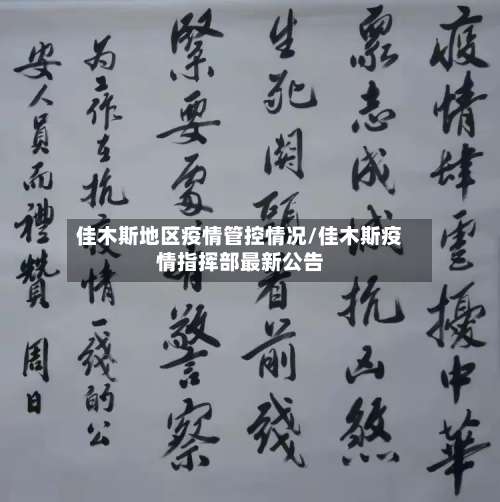 疫情肆虐擾中華
眾志成城抗凶煞
生死関頭看前綫
緊要處有警察
为工作在抗疫情一綫的公
安人員而禮贊 周日
佳木斯地区疫情管控情况/佳木斯疫
情指挥部最新公告